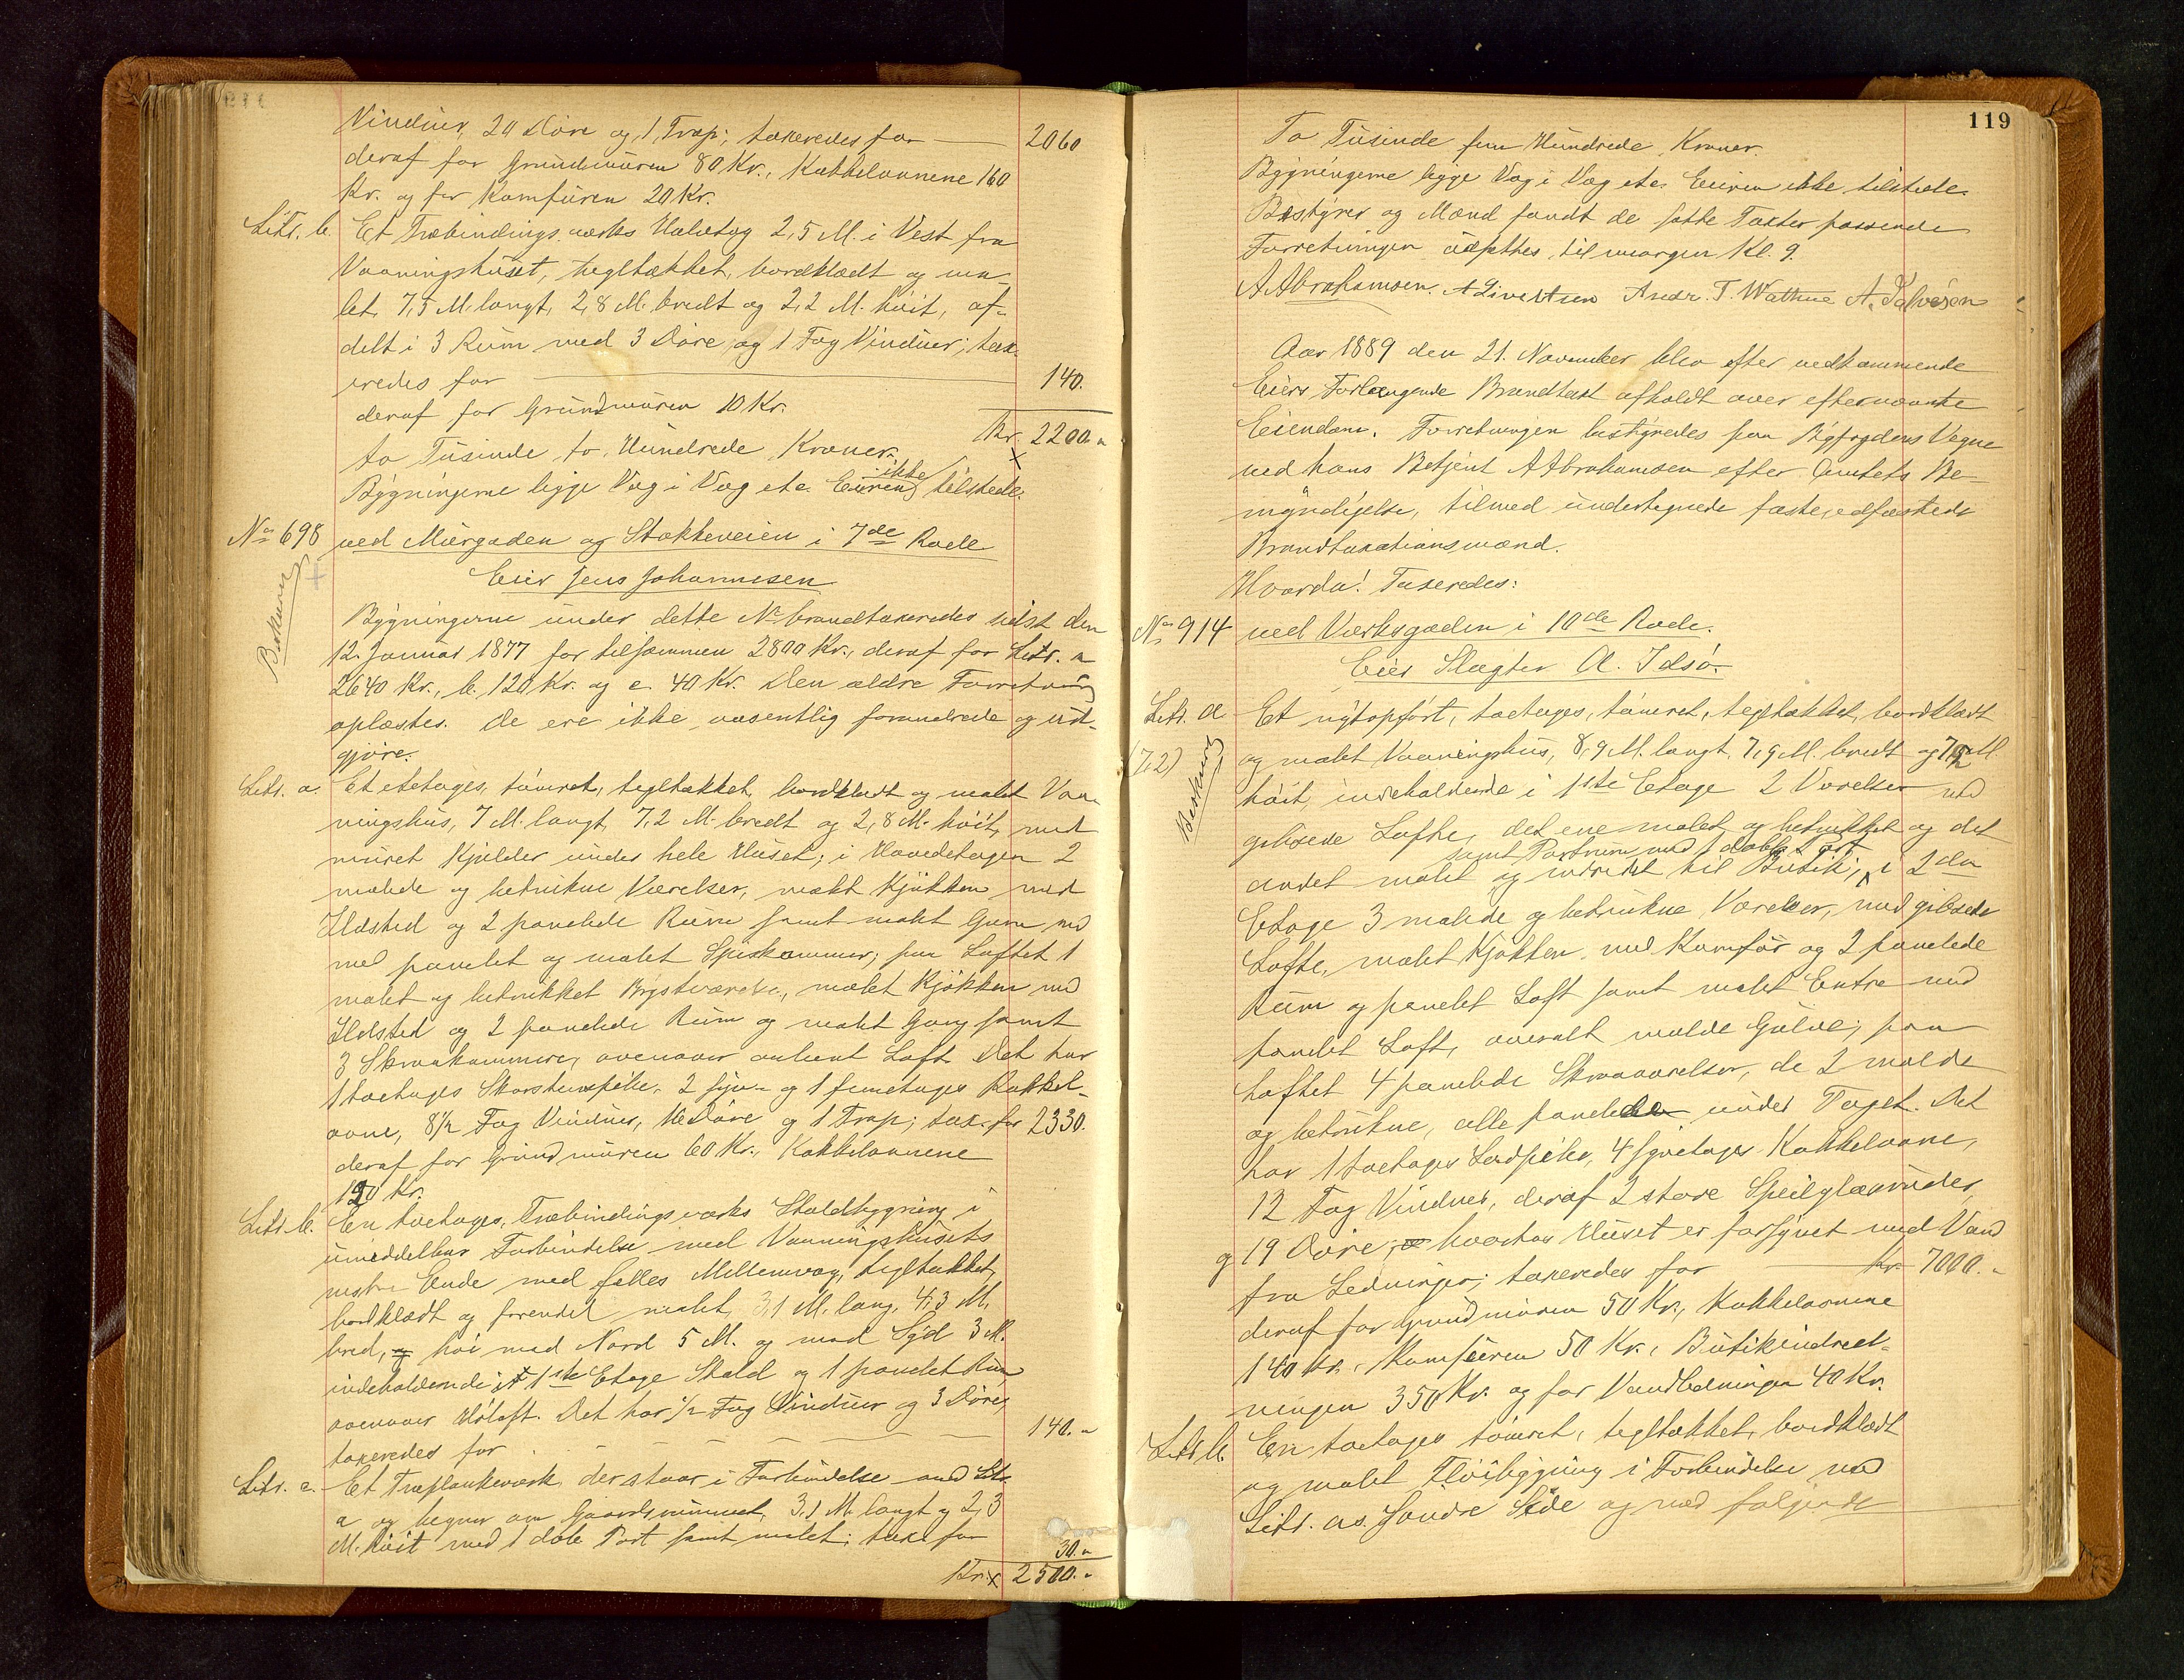 Vinduer, 20 Döre og 1 Trap; taxeredes for — 2060
deraf for Grundmuren 80 Kr., Kakkelovnene 160
Kr. og for Komfuren 20 Kr.
Litr. b. Et Træbindingsverks Halvtag 2,5 M. i Vest fra
Vaaningshuset, tegltækket, bordklædt og ma-
let, 7,5 M. langt, 2,8 M. bredt og 2,2 M. höit, af-
delt i 3 Rum med 3 Döre og 1 Fag Vinduer; tax-
eredes for — 140.
deraf for Grundmuren 10 Kr.
Kr. 2200.
to Tusinde to Hundrede Kroner.
Bygningerne ligge Væg i Væg etc. Eieren ikke tilstede.
No 698 ved Murgaden og Stokkeveien i 7de Rode
Eier Jens Johannesen
Bygningerne under dette No brandtaxeredes sidst den
12. Januar 1877 for tilsammen 2800 Kr., deraf for Litr. a
2640 Kr., b. 120 Kr. og c. 40 Kr. Den ældre Forretning
oplæstes. De ere ikke væsentlig forandrede og ud-
gjöre.
Litr. a. Et etetages, tömret, tegltækket, bordklædt og malet Vaa-
ningshus, 7 M. langt, 7,2 M. bredt og 2,8 M. höit, med
muret Kjælder under hele Huset; i Hovedetagen 2
malede og betrukne Værelser, malet Kjökken med
Ildsted og 2 panelede Rum samt malet Gang med
panelet og malet Spiskammer; paa Loftet 1
malet og betrukket Brystværelse, malet Kjökken med
Ildsted og 2 panelede Rum og malet Gang samt
3 Skraakammere, ovenover Loft. Det har
1 toetages Skorstenspibe, 2 og 1 Kakkel-
ovne, 8½ Fag Vinduer, Döre og 1 Trap; tax. for 2330.
deraf for Grundmuren 60 Kr., Kakkelovnene
120 Kr.
Litr. b. En toetages, Træbindingsverks Staldbygning i
umiddelbar Forbindelse med Vaaningshusets
Ende med fælles Mellemvæg, tegltækket,
bordklædt og forendel malet, 3,1 M. lang, 4,3 M.
bred, höi mod Nord 5 M. og mod Syd 3 M.
indeholdende i 1ste Etage Stald og 1 panelet Rum
ovenover Höloft. Det har ½ Fag Vinduer og 3 Döre;
taxeredes for — 140.
Litr. c. Et Træplankeverk der staar i Forbindelse med Litr.
a og hegner om Gaardsrummet, 3,1 M. langt og 2,3
M. höit med 1 dob. Port samt malet; tax. for
30.
Kr. 2500.
119
To Tusinde fem Hundrede Kroner.
Bygningerne ligge Væg i Væg etc. Eieren ikke tilstede.
Bestyrer og Mænd fandt de satte Taxter passende
Forretningen udsattes til morgen Kl. 9.
A Abrahamsen. A Sivertsen Andr. T. Wathne A. Salvesen
Aar 1889 den 21. November blev efter vedkommende
Eiers Forlangende Brandtaxt afholdt over efternævnte
Eiendom. Forretningen bestyredes paa Byfogdens Vegne
ved hans Betjent A Abrahamsen efter Amtets Be-
myndigelse, tilmed undertegnede faste, edfæstede
Brandtaxationsmænd.
Hvorda! Taxeredes:
No 914 ved Verksgaden i 10de Rode.
Eier Slagter O. Idsö.
Litr. a Et nytopfört, toetages, tömret, tegltækket, bordklædt
(7,2) og malet Vaaningshus, 8,9 M. langt, 7,9 M. bredt og 7,2 M
höit, indeholdende i 1ste Etage 2 Værelser med
gibsede Lofte, det ene malet og betrukket og det
samt Portrum med 1 dobbelt Port
andet malet og indredet til Butik; i 2den
Etage 3 malede og betrukne Værelser, med gibsede
Lofte, malet Kjökken med Komfur og 2 panelede
Rum og panelet Loft samt malet Entre med
panelet Loft, overalt malede Gulve; paa
Loftet 4 panelede Skraaværelser, de 2 malede
og betrukne, alle panelede under Taget. Det
har 1 toetages Lodpibe, 4 Kakkelovne,
12 Fag Vinduer, deraf 2 store Speilglasruder
og 19 Döre; hvorhos Huset er forsynet med Vand
fra Ledningen; taxeredes for — Kr. 7000.
deraf for Grundmuren 50 Kr., Kakkelovnene
140 Kr., Komfuren 50 Kr., Butikindred-
ningen 350 Kr. og for Vandledningen 40 Kr.
Litr. b. En toetages tömret, tegltækket, bordklædt
og malet Flöibygning i Forbindelse med
Litr. as. Söndre Side og med følgende